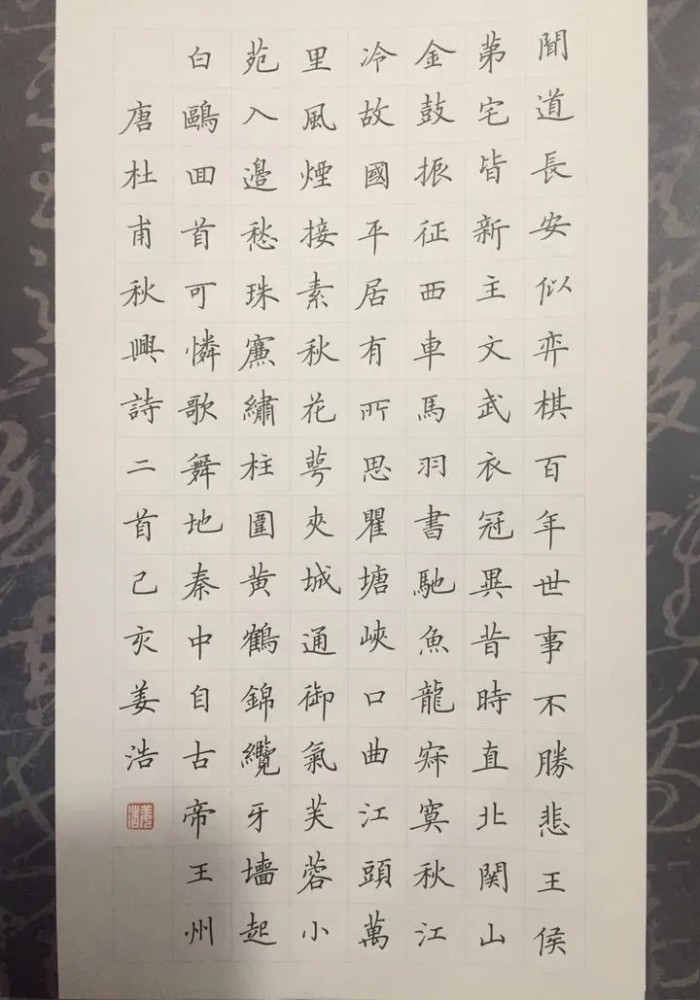 聞道長安似弈棋百年世事不勝悲王侯
苐宅皆新主文武衣冠異昔時直北関山
金鼓振征西車馬羽書馳魚龍寂寞秋江
冷故國平居有所思瞿塘峽口曲江頭萬
里風煙接素秋花萼夾城通御氣芙蓉小
苑入邊愁珠簾繡柱圍黄鶴錦纜牙墻起
白鷗囬首可憐歌舞地秦中自古帝王州
唐杜甫秋興詩二首己亥姜浩
姜浩